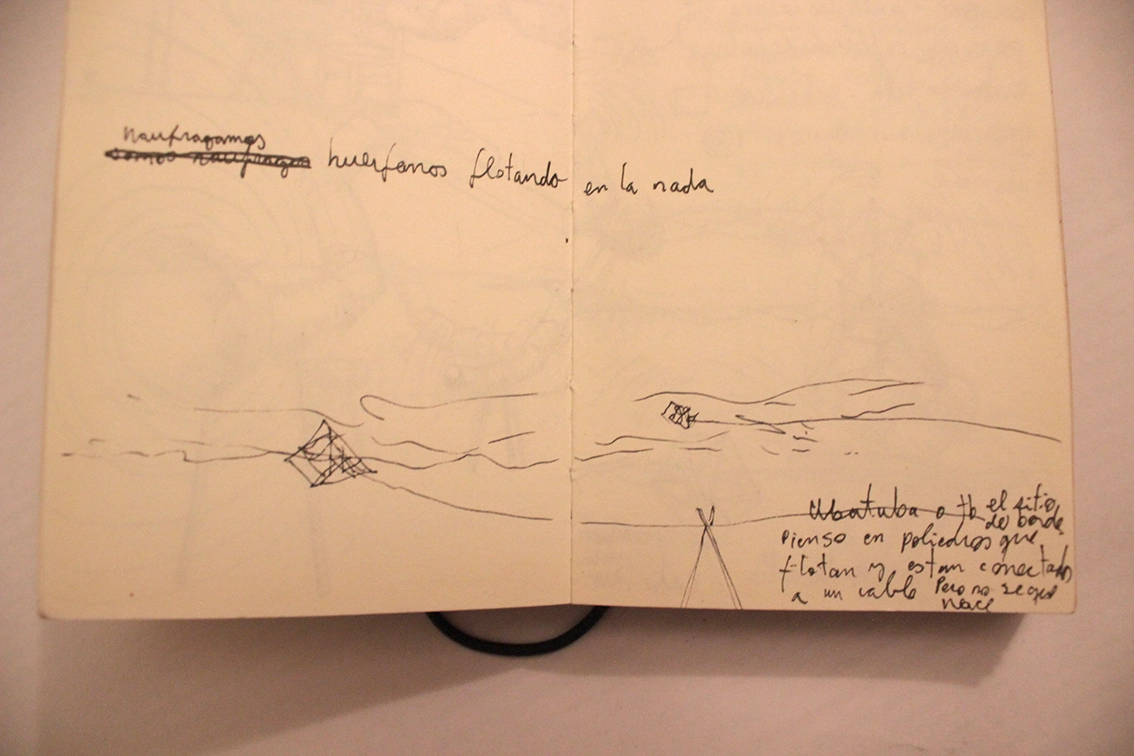 naufragamos
somos naufragos huerfanos flotando en la nada
Ubatuba o tb el sitio
de borde
Pienso en poliedros que
flotan y estan conectados
a un cable Pero no se que
hace